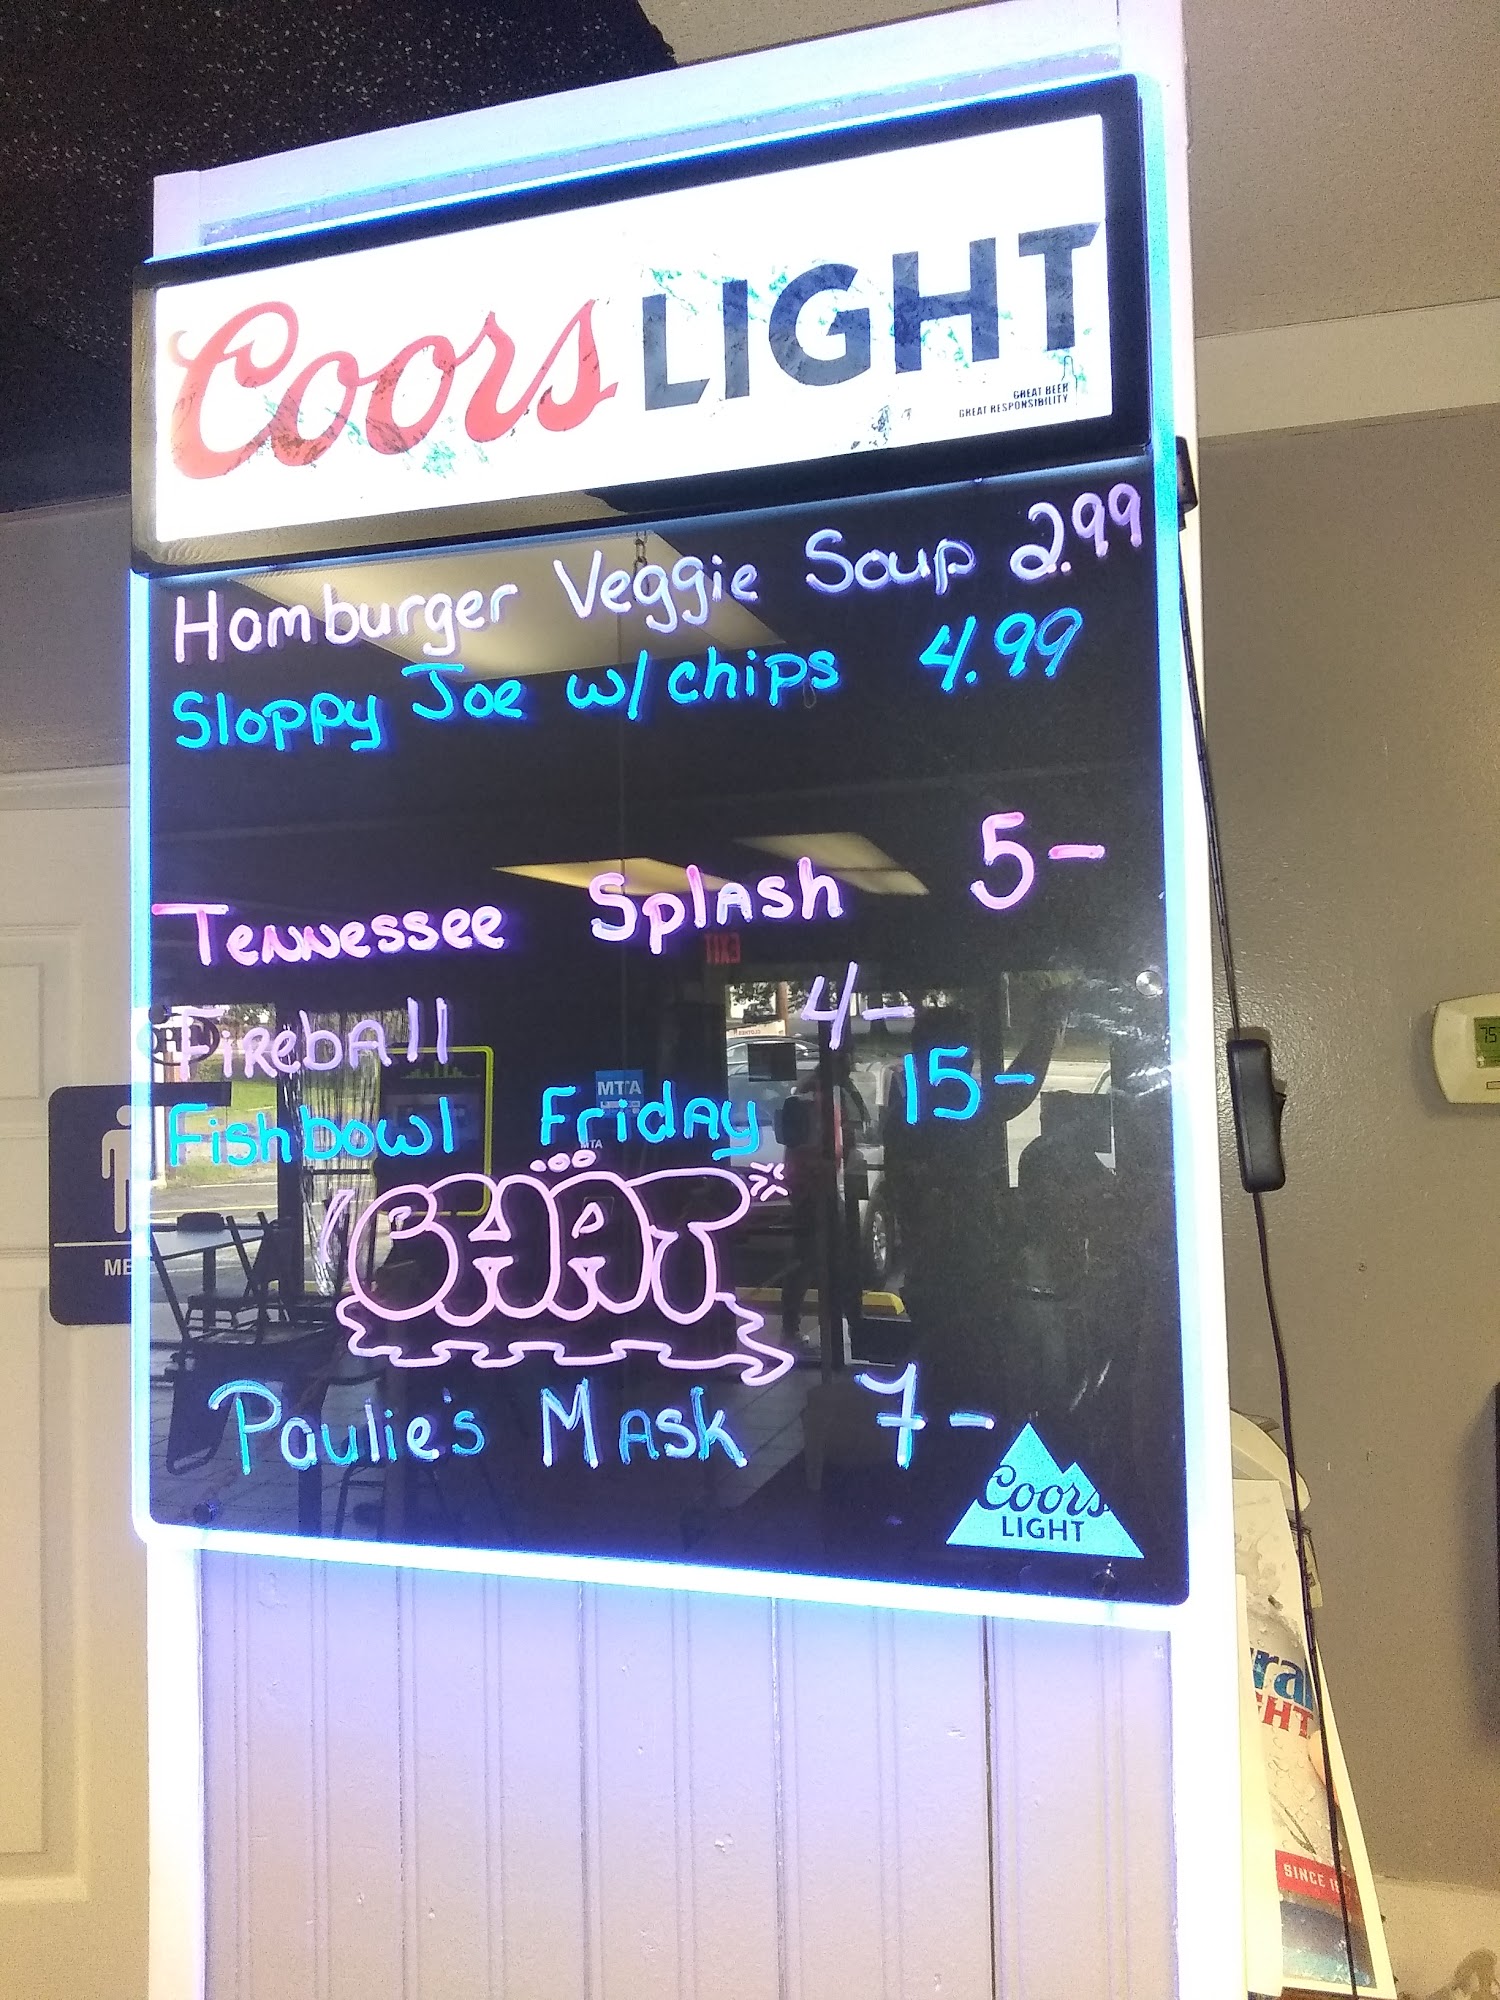 Coors LIGHT
GREAT BEER
GREAT RESPONSIBILITY
Hamburger Veggie Soup 2.99
Sloppy Joe w/chips 4.99
Tennessee Splash 5-
EXIT
Fireball 4-
MTA
Fishbowl Friday 15-
MTA
CHAT
Paulie's Mask 7-
Coors
LIGHT
ME
75
ural
GHT
SINCE 1